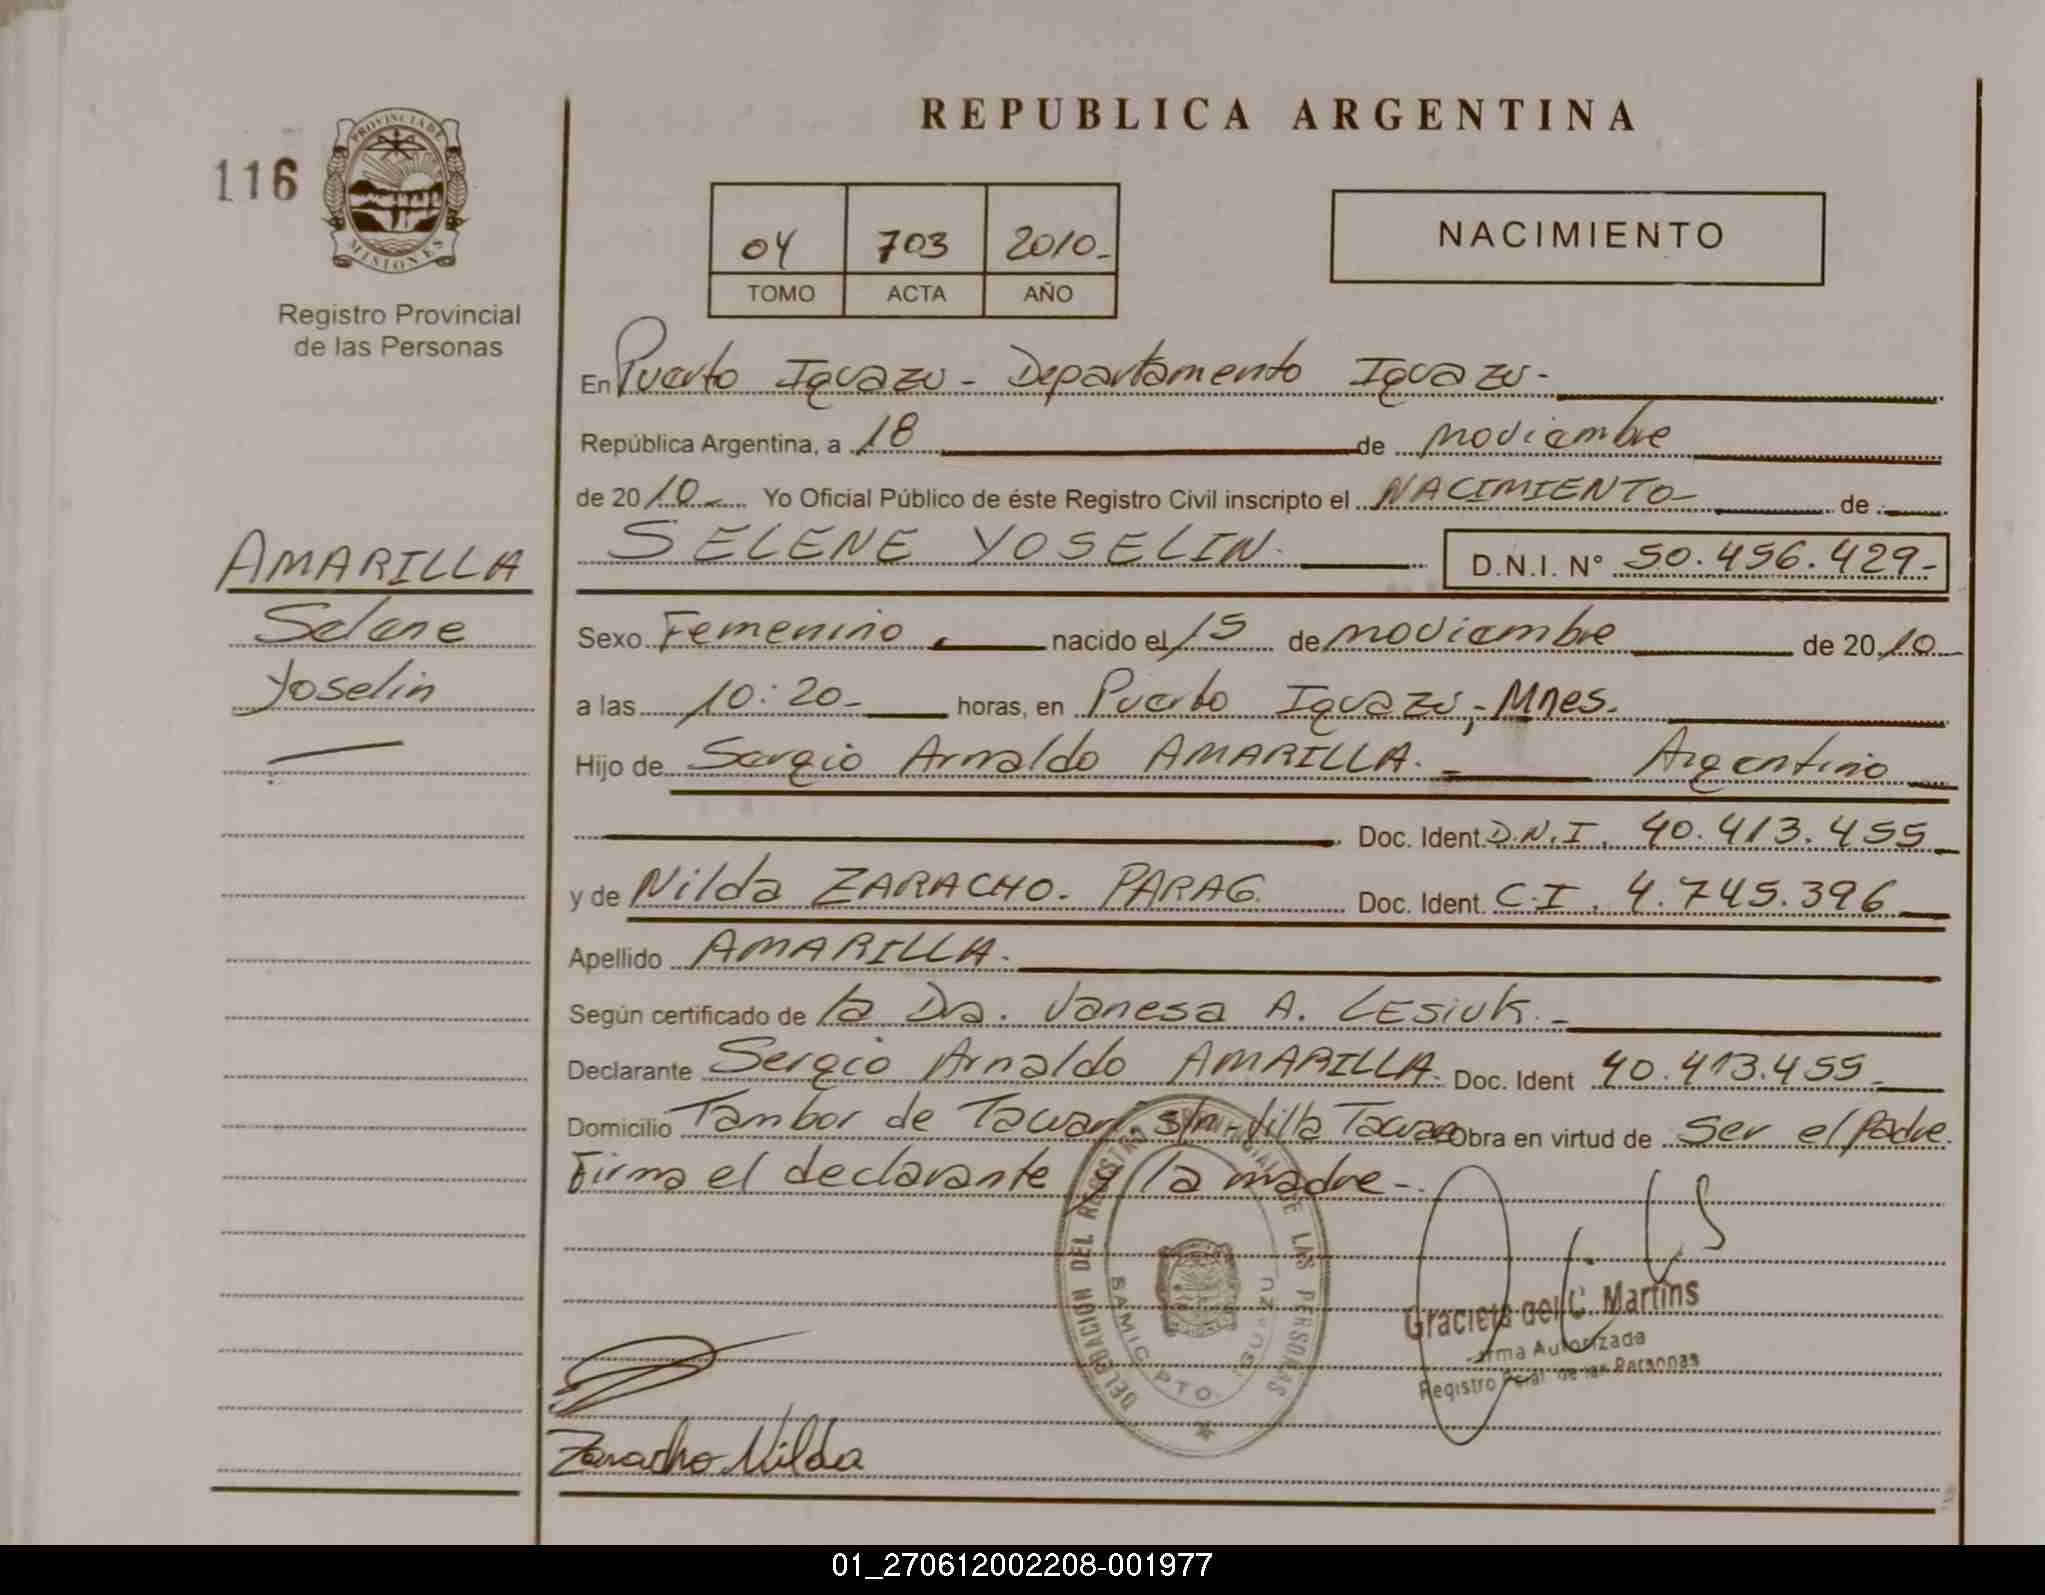 REPUBLICA ARGENTINA
116
PROVINCIA DE
MISIONES
Registro Provincial
de las Personas
04 703 2010-
TOMO ACTA AÑO
NACIMIENTO
En Puerto Iguazu - Departamento Iguazu -
República Argentina, a 18 de noviembre
de 2010 - Yo Oficial Público de éste Registro Civil inscripto el NACIMIENTO - de
SELENE YOSELIN. D.N.I. N° 50.456.429-
AMARILLA
Selene
Yoselin
Sexo Femenino nacido el 15 de noviembre de 2010
a las 10:20- horas, en Puerto Iguazu, - Mnes.
Hijo de Sergio Arnaldo AMARILLA. - Argentino
Doc. Ident. D.N.I. 40.413.455
y de Nilda ZARACHO. PARAG. Doc. Ident. C.I. 4.745.396
Apellido AMARILLA.
Según certificado de la Dra. Vanesa A. LESIUK. -
Declarante Sergio Arnaldo AMARILLA. Doc. Ident 40.413.455
Domicilio Tambor de Tacuari s/n - Villa Obra en virtud de Ser el padre.
Firma el declarante y la madre -
DELEGACION DEL REGISTRO PROVINCIAL DE LAS PERSONAS
Graciela del C. Martins
Firma Autorizada
Registro Pcial. de las Personas
Zaracho Nilda
01_270612002208-001977